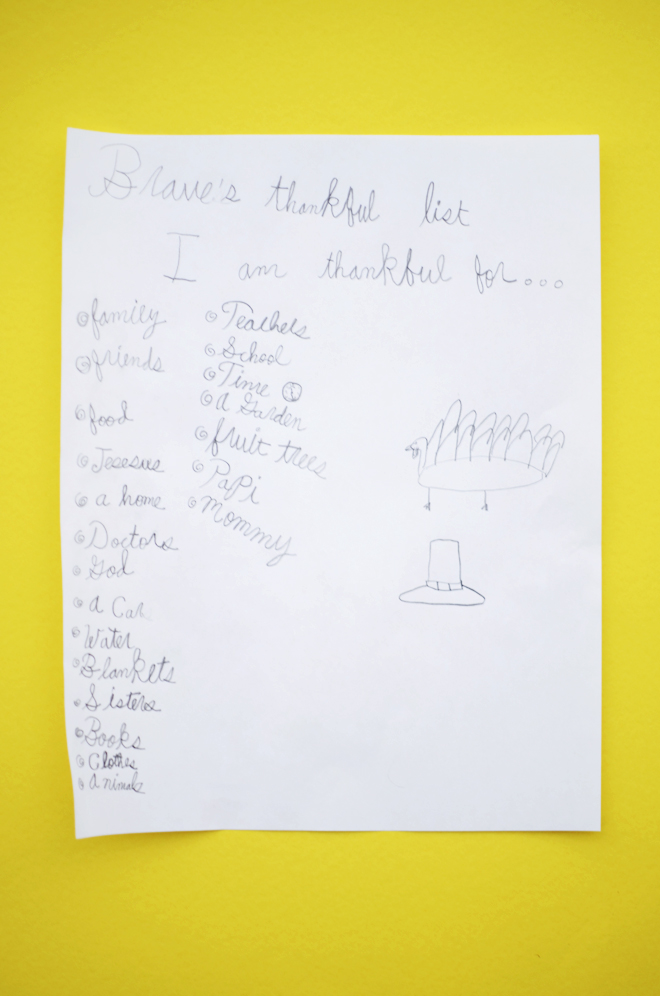 Brave's thankful list
I am thankful for...
family
friends
food
Jesesus
a home
Doctors
God
a Car
Water
Blankets
Sisters
Books
Clothes
animals
Teachers
School
Time
a Garden
fruit trees
Papi
Mommy